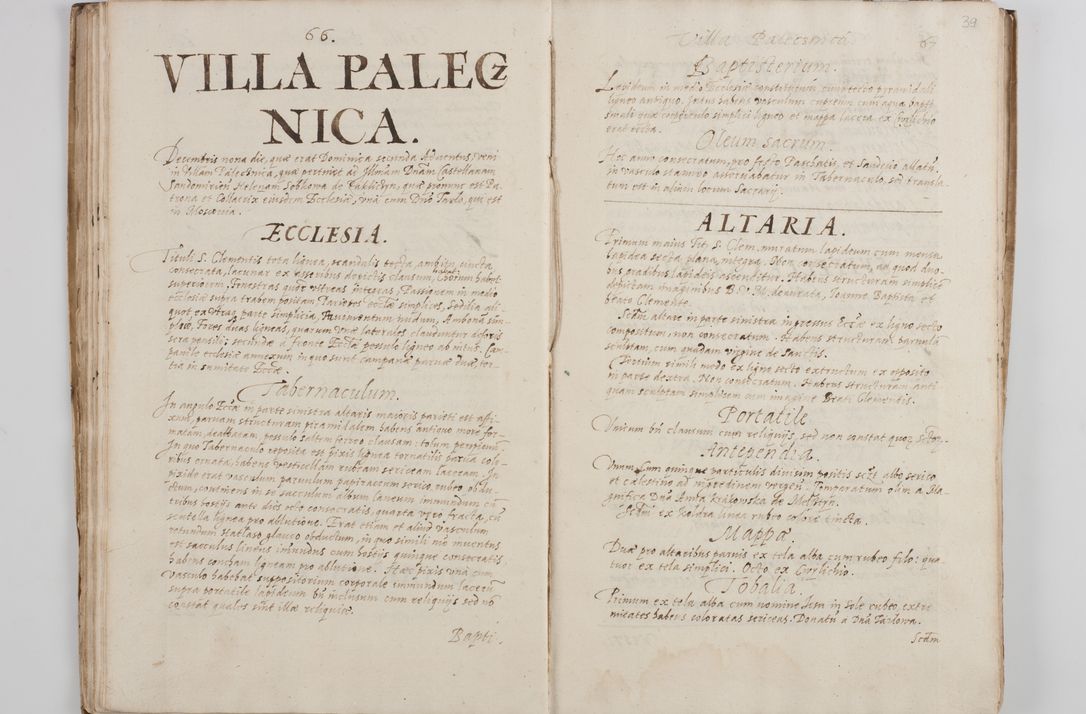 66.
VILLA PALECZ
NICA.
Decembris nona die, quæ erat Dominica secunda Aduentus, veni
in Villam Palecznica, quæ pertinet ad Illmam Dnam Castellanam
Sandomirien Helenam Sobkowa de Zakliczyn, quæ pronunc est Pa-
trona et Collatrix eiusdem Ecclesiæ, vna cum Dno Tarlo, qui est
in Moscouia.
ECCLESIA.
Tituli S. Clementis tota lignea, scandulis tecta, ambitu cincta
consecrata, lacunar ex asseribus depictis clausum, Chorum habet
superiorem, Fenestras quoq vitreas integras, Passionem in medio
ecclesiæ supra trabem positam, Parietes eccæ simplices, Sedilia ali-
quot ex vtraq parte simplicia, Pauimentum nudum, Ambona sim-
plex, Fores duas ligneas, quarum vnæ laterales clauduntur deforis
sera pensili, secundæ à fronte Eccæ pessulo ligneo ab intus, Cam-
panile ecclesiæ annexum in quo sunt campanæ paruæ duæ, ter-
tia in sumitate Eccæ.
Tabernaculum.
In angulo Eccæ in parte sinistra altaris maioris parieti est affi-
xum, paruam structuram piramidalem habens antiquo more for-
matam, deauratam, pessulo saltem ferreo clausam: totum
In quo Tabernaculo reposita est pixis lignea tornatilis varijs colo-
ribus ornata, habens vesticellam rubram sericeam laceram. In
pixide erat vasculum paruulum papiraceum serico rubeo obdu-
ctum, continens in se sacculum album laneum immundum cū
tribus hostijs ante dies octo consecratis, quarta vero fracta, cū
scutella lignea pro ablutione. Erat etiam et aliud vasculum
rotundum glauco obductum, in quo simili mo inuentus
est sacculus lineus imundus cum hostijs quinque consecratis,
habens concham ligneam pro ablutione. Hæc pixis vna cum
vasculo habebat suppositorium corporale immundum lacerū
supra portatile lapideum bn inclusum cum reliquijs sed nō
constat quales sint illæ reliquiæ.
Bapti-
39
Villa Palecznica 67
Baptisterium.
Lapideum in medio Ecclesiæ constitutum, cum tecto pyramidali
ligneo antiquo. Intus habens vasculum cupreum cum aqua bapti-
smali quæ cooperculo simplici ligneo, et mappa lacera ex Czwilichio
erat tecta.
Oleum sacrum.
Hoc anno consecratum, pro festo Paschatis, et Sandecio allatū
in vasculo stanneo asseruabatur in Tabernaculo, sed transla-
tum est in alium locum Sacrarij.
ALTARIA.
Primum maius Tit: S. Clem, muratum lapideum cum mensa
lapidea secta plana, integra. Non consecratum, ad quod duo-
bus gradibus lapideis ascenditur. Habens structuram simplicē
depictam imaginibus B. V. M. deaurata, Ioanne Baptista et
beato Clemente.
Scdm altare in parte sinistra ingressus Eccæ ex ligno secto
compositum, non consecratum. Habens structuram paruulā
sculptam, cum quadam virgine de Sanctis.
Tertium simili modo ex ligno secto extructum ex opposito
in parte dextra. Non consecratum. Habens structuram anti-
quam sculptam simplicem cum imagine Beati Clementis.
Portatile
Vnum bn clausum cum reliquijs, sed non constat quor Sctor.
Antependia.
Vnum Cum quinque particulis diuisim positis albo serico
et cælestino ad ingredinem vergen. Comparatum olim a Ma-
gnifica Dna Anna Krakowska de Melstyn.
Scdm ex koldra linea rubro colore tincta.
Mappæ.
Duæ pro altaribus paruis ex tela alba cum rubeo filo: qua-
tuor ex tela simplici. Octo ex Cwylichio.
Tobalia.
Primum ex tela alba cum nomine Iesu in sole rubeo, extre-
mitates habens coloratas sericeas. Donatū a Dna Tarlowa.
Scdm